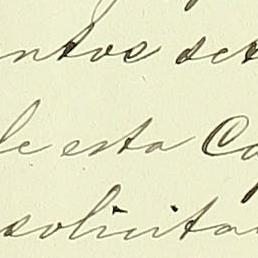 ntos set
le esta Ca
solicita